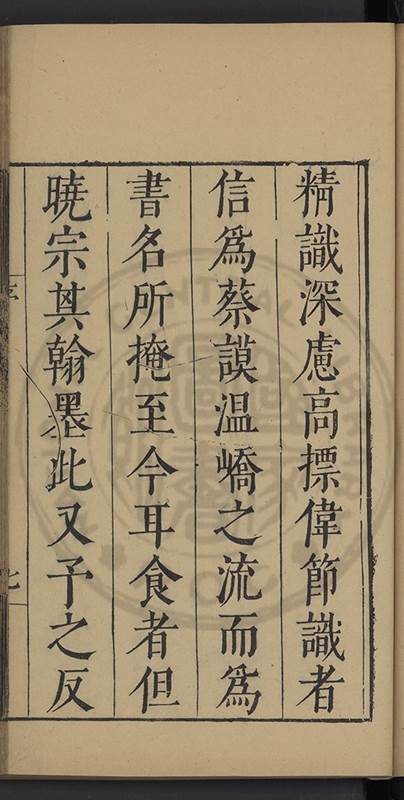 精識深慮高摽偉節識者
信爲蔡謨温嶠之流而爲
書名所掩至今耳食者但
曉宗其翰墨此又予之反